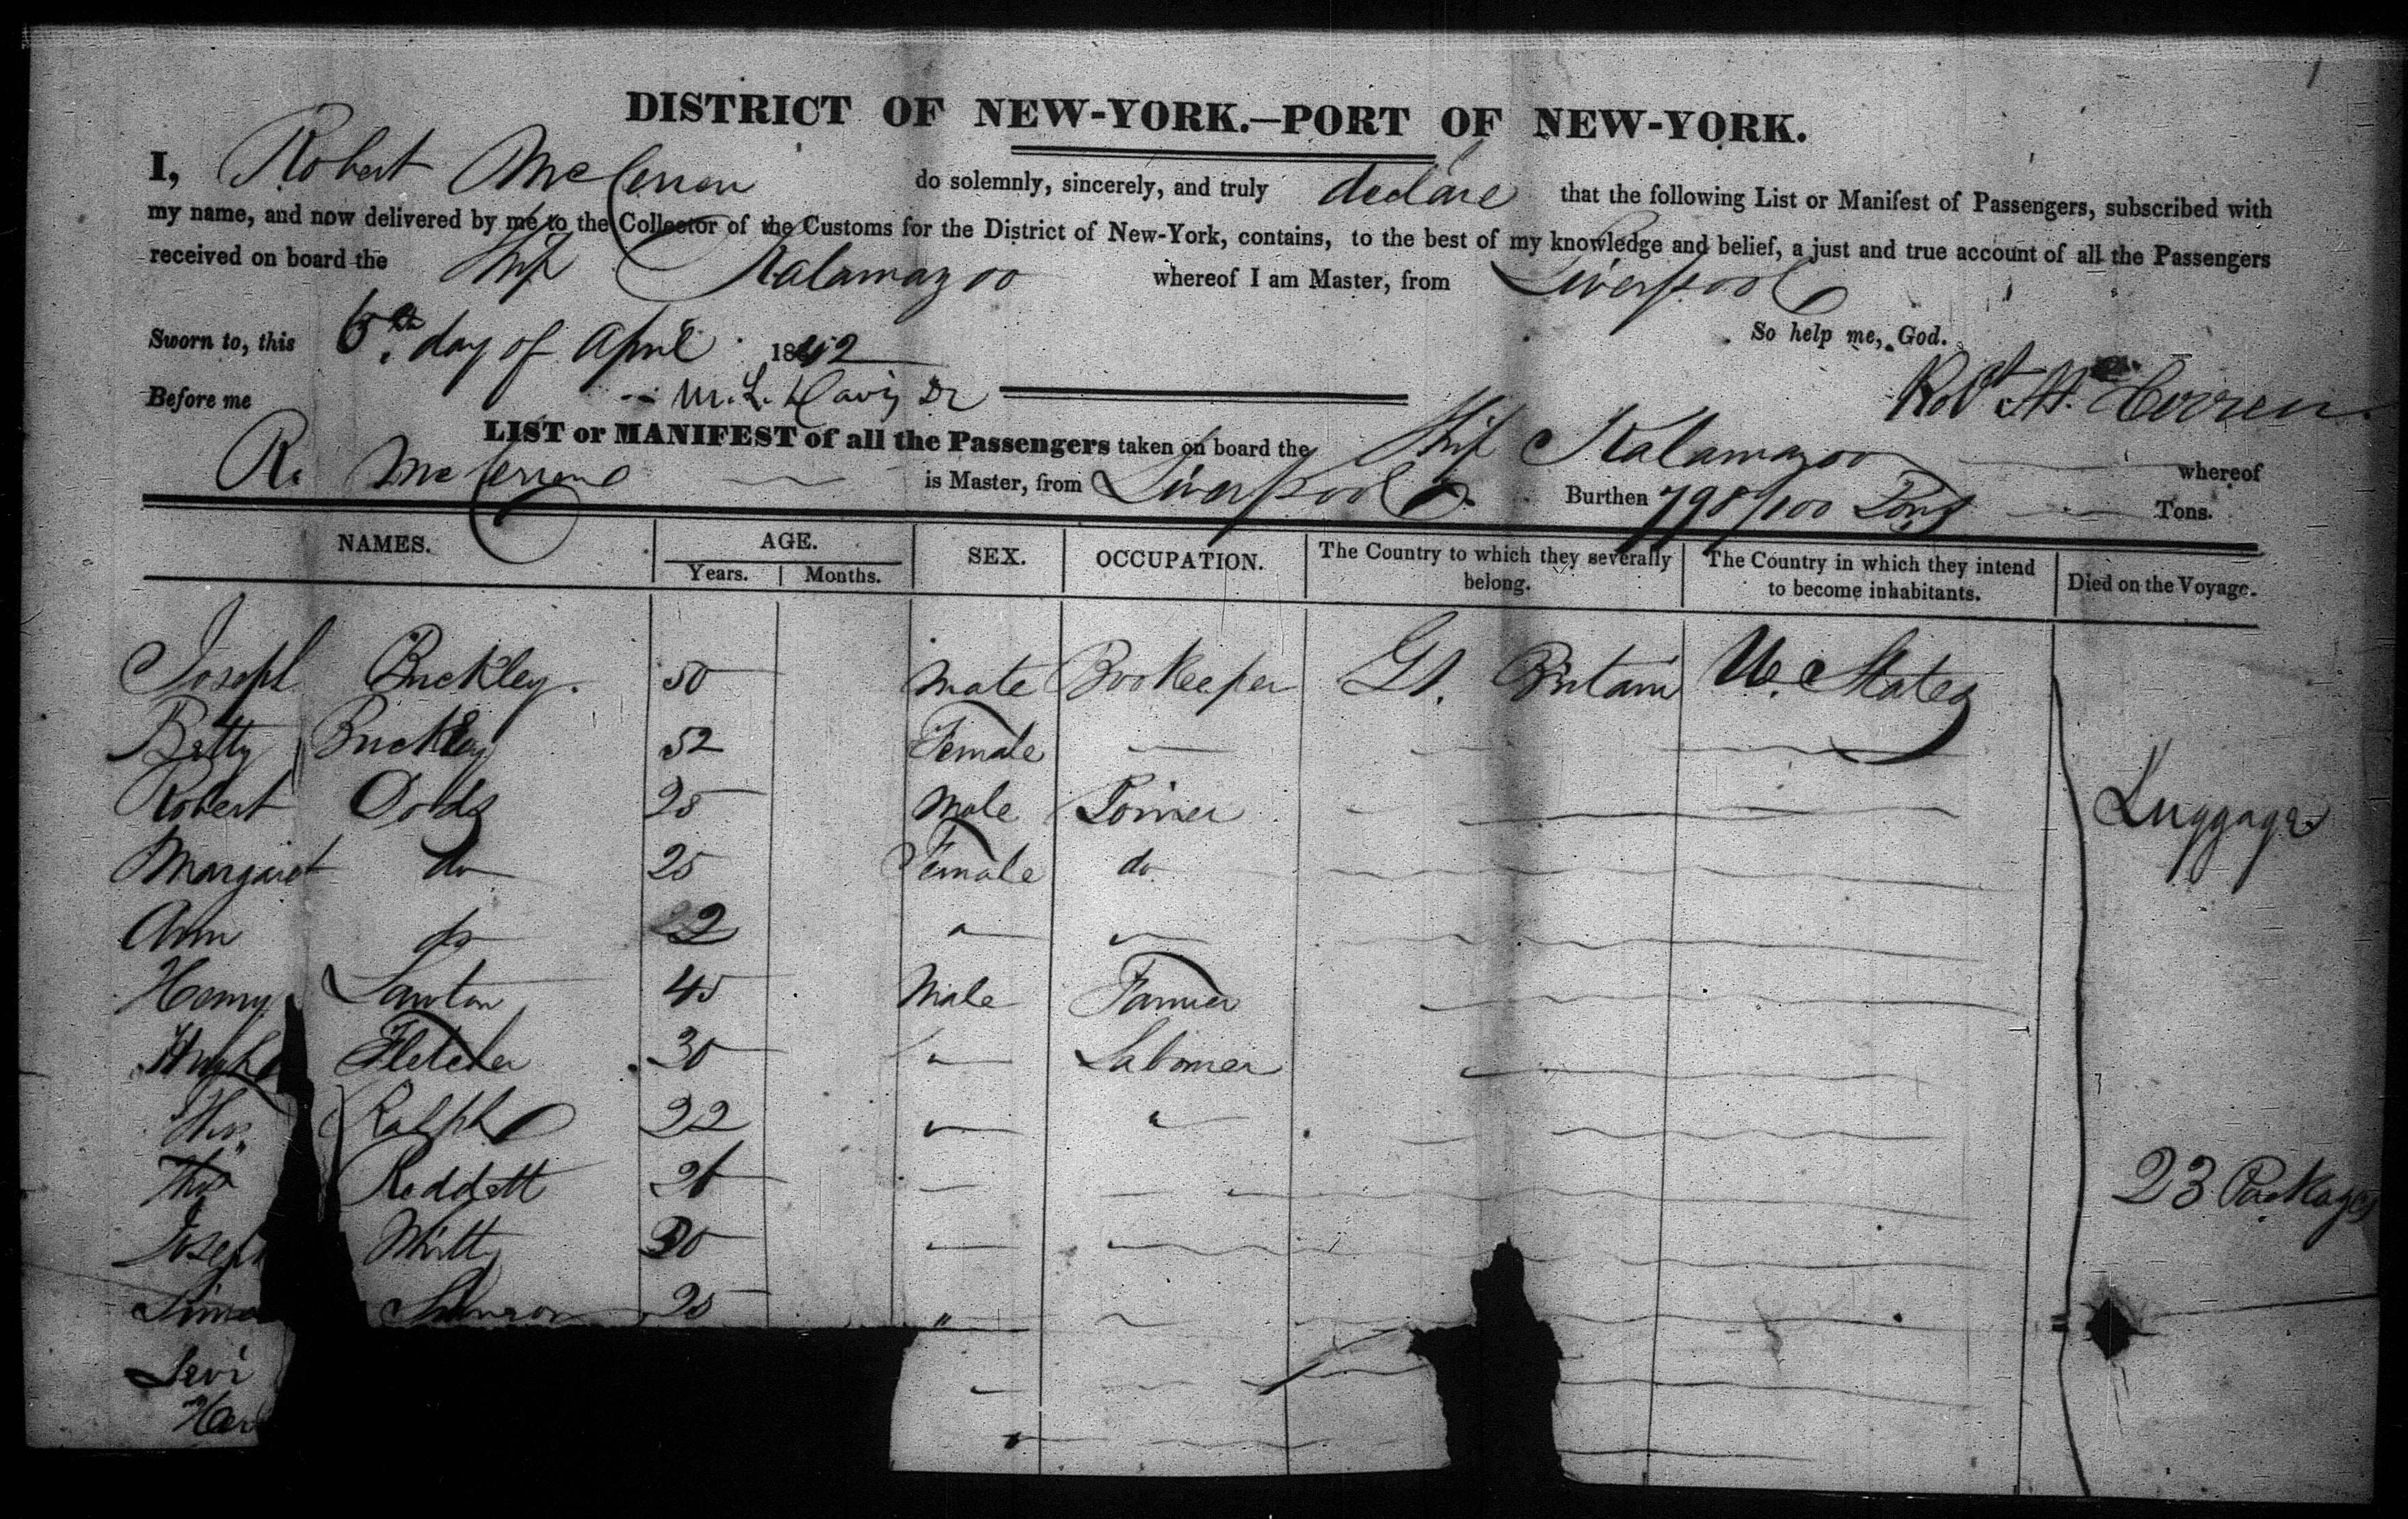 DISTRICT OF NEW-YORK.—PORT OF NEW-YORK.
I, Robert McCerren do solemnly, sincerely, and truly declare that the following List or Manifest of Passengers, subscribed with
my name, and now delivered by me to the Collector of the Customs for the District of New-York, contains, to the best of my knowledge and belief, a just and true account of all the Passengers
received on board the Ship Kalamazoo whereof I am Master, from Liverpool
So help me, God.
Sworn to, this day of April 1842
Robt Mc Cerren
Before me M. L. Davis
LIST or MANIFEST of all the Passengers taken on board the Ship Kalamazoo whereof
R. McCerren is Master, from Liverpool Burthen 798/100 Tons Tons.
NAMES. AGE. SEX. OCCUPATION. The Country to which they severally belong. The Country in which they intend to become inhabitants. Died on the Voyage.
Years. Months.
Joseph Buckley. 50 Male Bookeeper Gt. Britain U. States
Betty Buckley 52 Female
Robert Dodds 25 Male Joiner Luggage
Margaret do 25 Female do
Ann do 22 "
Henry Lawton 45 Male Farmer
Hugh Fletcher 30 " Labourer
Thos. Ralph 22 " "
Thos 26 23 Packages
Joseph 30
Simo 25 "
Levi
Har